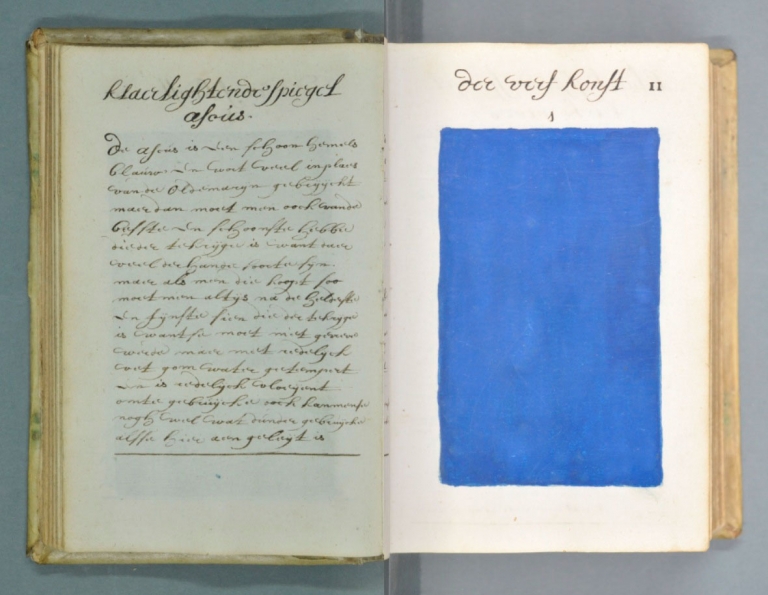 klaerlightende spiegel
asuis.
de asuis is een schoon hemels
blauw en wort veel in plaes
van de oldemaryn gebruyckt
maer dan moet men oock vande
beste en schoonste hebbe
die der te kryge is want daer
veel der hande soorte syn
maer als men die koopt soo
moet men altys na de helderste
en fynste sien die der te krygen
is want se moet niet gevreve
werde maer met redelyck
vet gom water getempert
en is redelyck vloeyent
omte gebruycke oock kan mense
nogh wel wat dunder gebruycke
alsse hier aen geleyt is
der verf konst 11
1